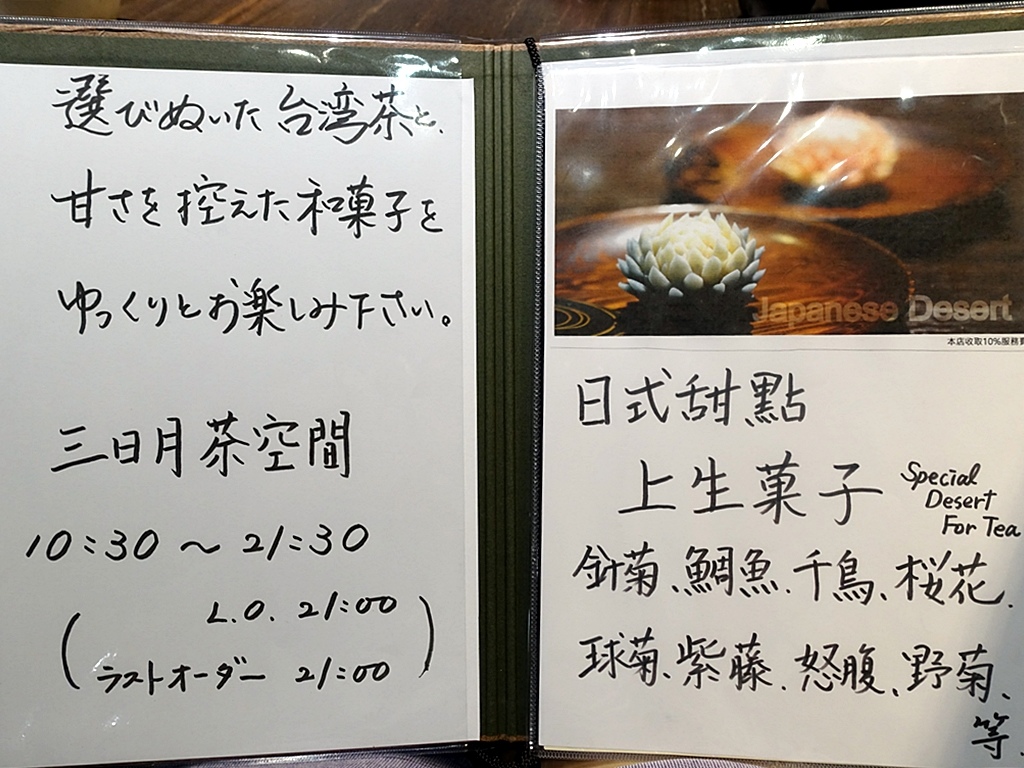 選びぬいた台湾茶と、
甘さを控えた和菓子を
ゆっくりとお楽しみ下さい。
三日月茶空間
10:30 ~ 21:30
L.O. 21:00
ラストオーダー 21:00
Japanese Desert
本店收取10%服務費
日式甜點
上生菓子
Special
Desert
For Tea
針菊、鯛魚、千鳥、桜花、
球菊、紫藤、怒腹、野菊、
等、